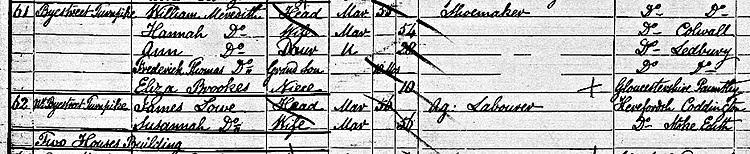 61 Byestreet Turnpike William Meredith Head Mar 55 Shoemaker Do Do
Hannah Do Wife Mar 54 Do Colwall
Ann Do Daur U 28 Do Ledbury
Frederick Thomas Do Grand Son Do Do
Eliza Brookes Niece 10 Gloucestershire Pauntley
62 Byestreet Turnpike James Lowe Head Mar 56 Ag: Labourer Herefordsh Coddington
Susannah Do Wife Mar 56 Do Stoke Edith
Two Houses Building